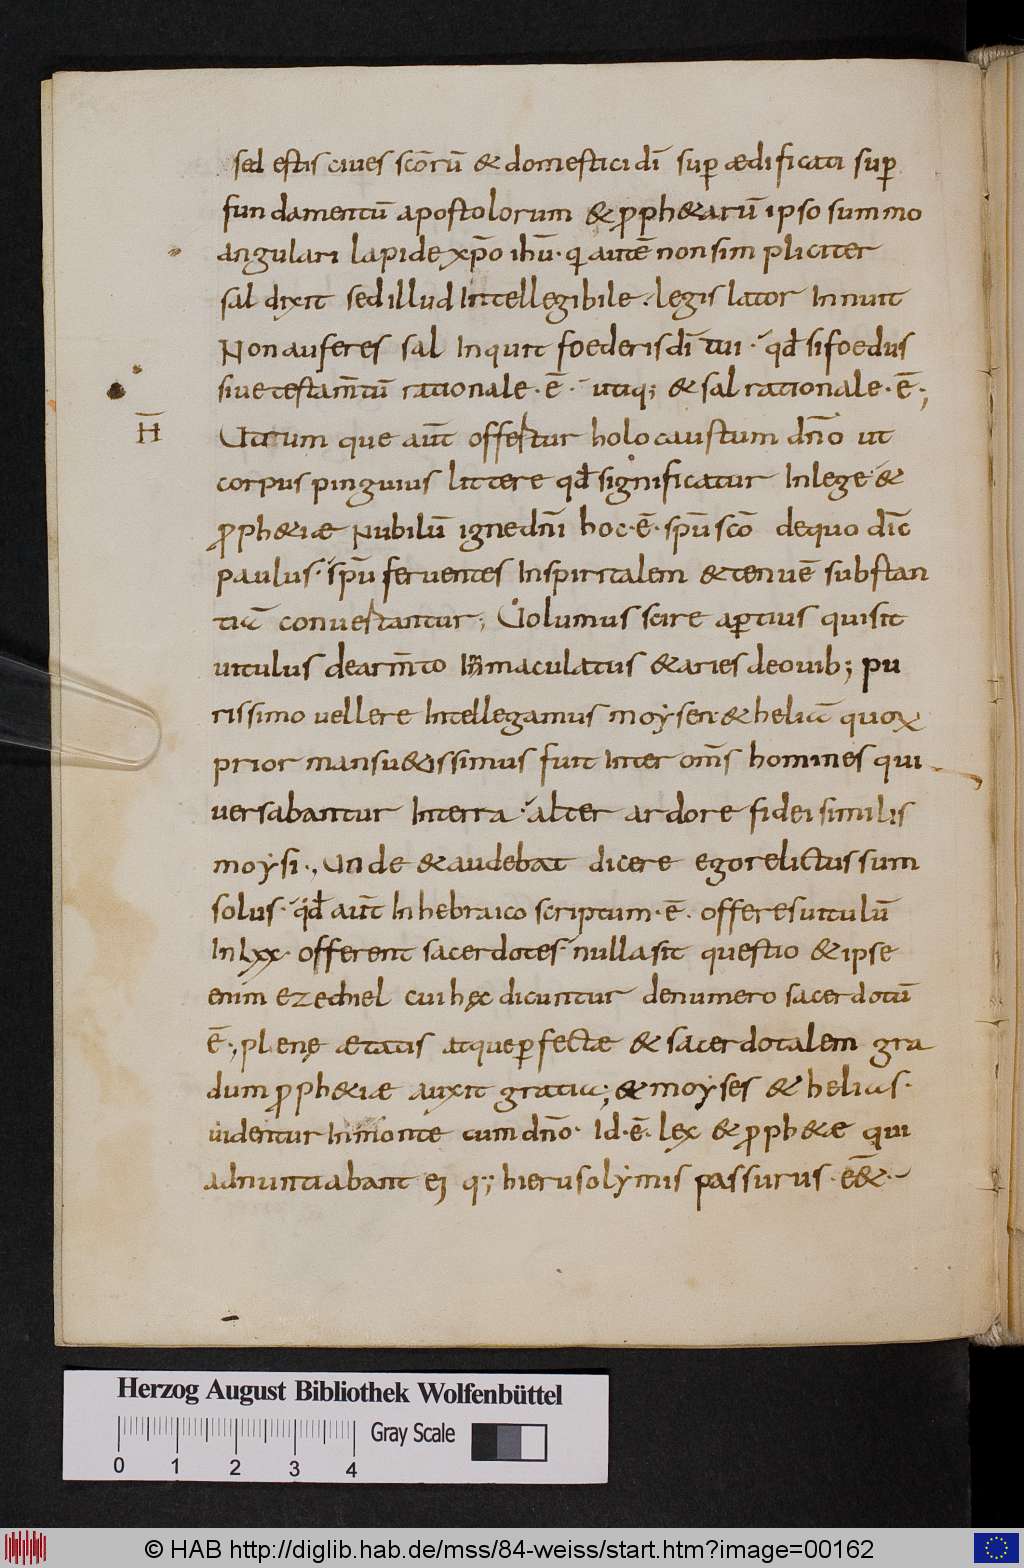 sed estis ciues scōrū & domestici dī sup̄ ædificati sup̄
fundamentū apostolorum & ꝓph&arū ipso summo
angulari lapide xp̄o ihū· qi autē non simpliciter
sal dixit sed illud Intellegibile· legis lator Innuit
Non auferes sal Inquit foederis dī tui· qđ si foedus
siue testam̄tū rationale·ē· utiq; & sal rationale·ē·;
H̄
Utrumque aūt offertur holocaustum dn̄o ut
corpus pinguius littere qđ significatur In lege &
ꝓph&iæ Nubilū igne dn̄i hoc·ē· sp̄u scō de quo dic̄
paulus· sp̄u feruentes In spiritalem & tenuē substan
tiā conuertantur; Uolumus scire ap̄tius qui sit
uitulus de arm̄to Inmaculatus & aries de ouib; pu
rissimo uellere Intellegamus moysen· & heliā quoꝝ
prior mansu&issimus fuit Inter om̄s homines qui
uersabantur In terra· alter ardore fidei similis
moysi·, Unde & audebat dicere ego relictus sum
solus· qđ aūt In hebraico scriptum·ē· offeres uitulū
In Lxx· offerent sacerdotes· nulla sit questio & ipse
enim ezechiel cui hęc dicuntur de numero sacerdotū
ē·; plenę ætatis atque ꝑfectæ & sacerdotalem gra
dum ꝓph&iæ auxit gratia; & moyses & helias·
uidentur In monte cum dn̄o· Id·ē· lex & ꝓph&e qui
adnuntiabant ei q·; hierusolymis passurus· e&̄·
Herzog August Bibliothek Wolfenbüttel
Gray Scale
0 1 2 3 4
© HAB http://diglib.hab.de/mss/84-weiss/start.htm?image=00162